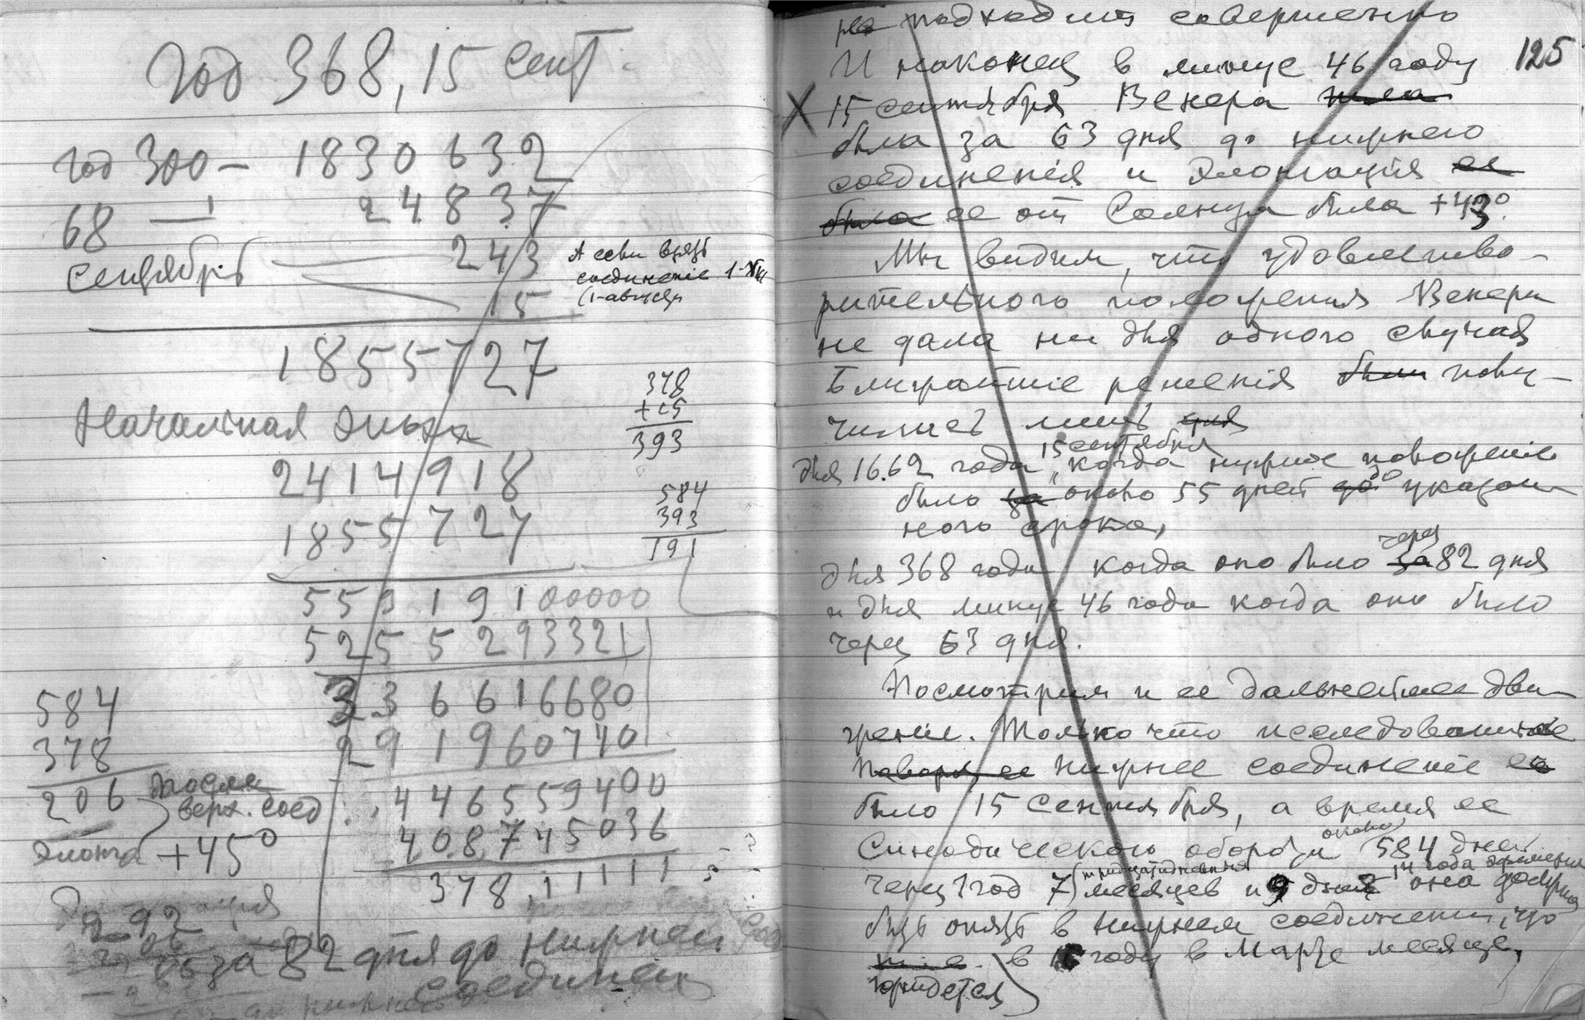 Год 368, 15 сент.
год 300 — 1830632
68 — 24837
Сентябрь 243
15
А если взять
соединеніе
(1-августа
1855727
378
+15
393
Начальная эпоха
2414918
1855727
584
393
191
55919100000
525529332
336616680
291960740
446559400
408745036
378,11111
584
378
206 после
верх. соед
Элонга +45°
за 82 дня до нижнего
соединен
125
не подходит совершенно
И наконец в минус 46 году
15 сентября Венера шла
была за 63 дня до нижнего
соединенія и элонгація ее
была ее от Солнца была +43°.
Мы видим, что удовлетво-
рительного положения Венера
не дала ни для одного случая
Ближайшіе решенія были полу-
чились лишь для
15 сентября
для 1662 года, когда нужное положеніе
было за около 55 дней до до указан-
ного срока,
через
для 368 года когда оно было за 82 дня
и для минус 46 года когда оно было
через 63 дня.
Посмотрим и ее дальнейшее дви-
женіе. Только что исследованное
нижнее соединеніе ее
было 15 Сентября, а время ее
около
Синодического оборота 584 дней
тридцатидневных
Через 1 год 7 месяцев и 9 дней она
быть опять в нижнем соединении, что
в 6 году в Марте месяце,
придется